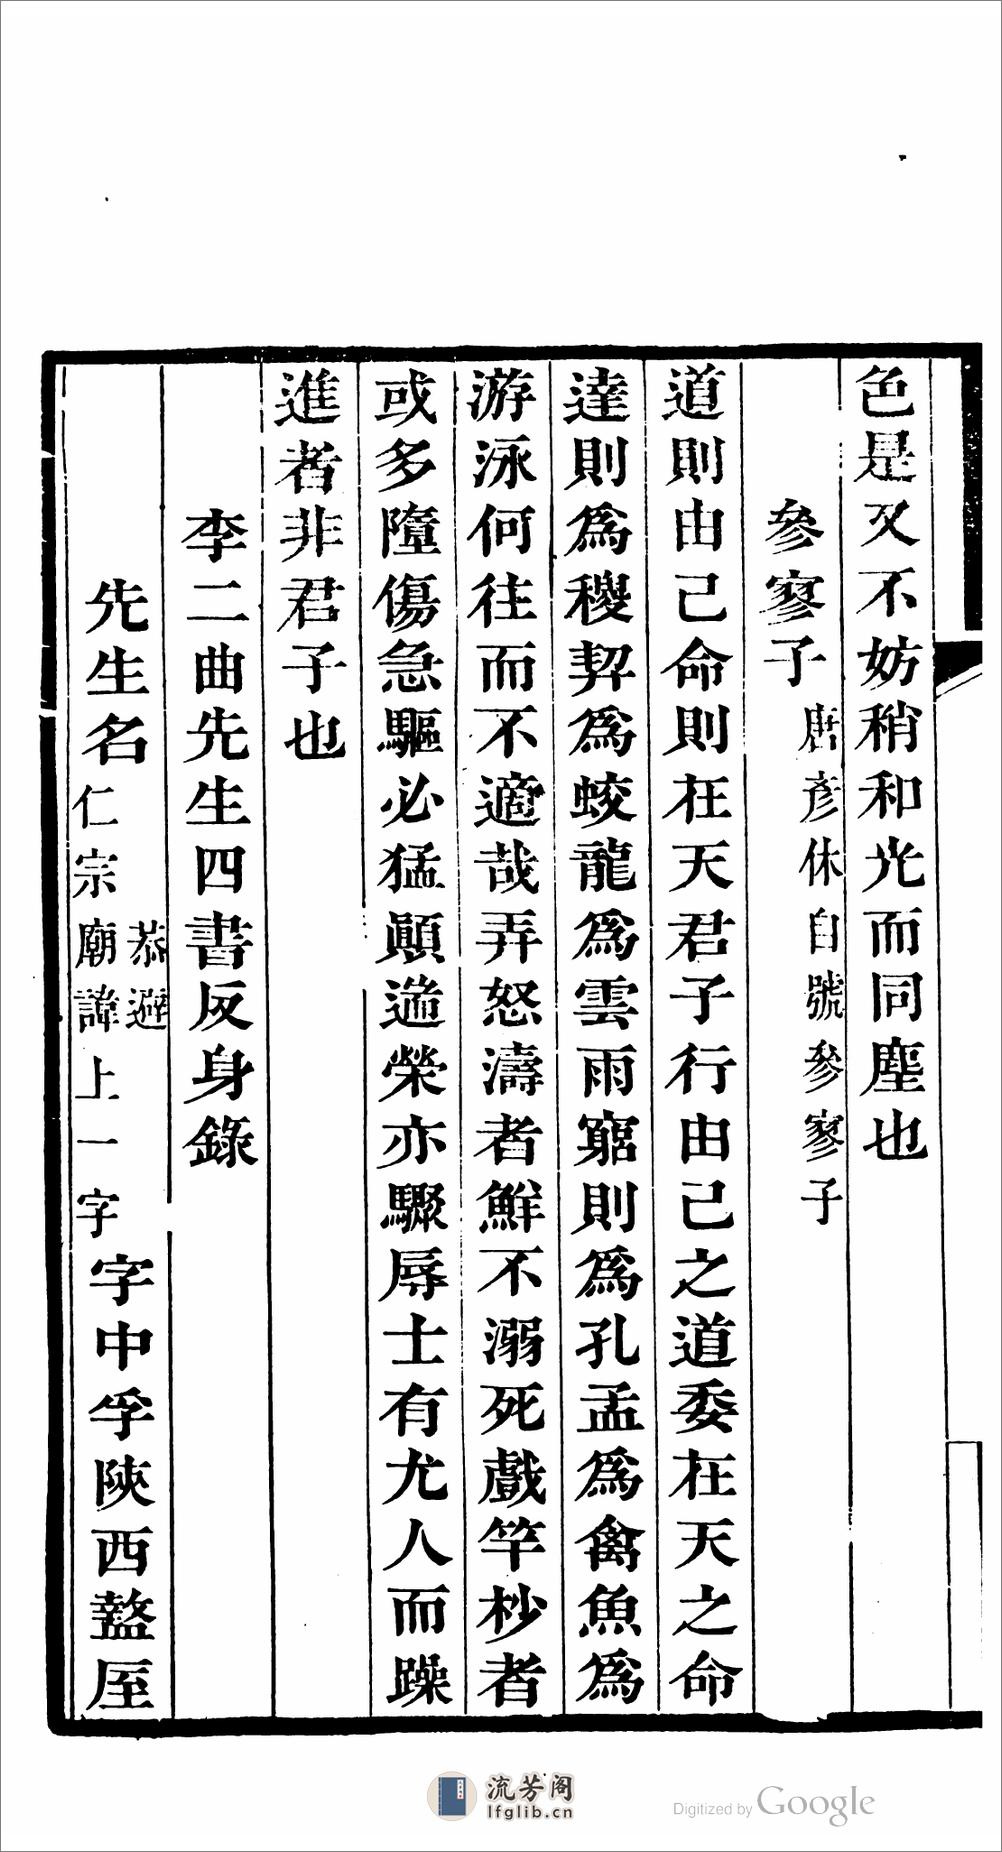 色是又不妨稍和光而同塵也
參寥子唐彥休自號參寥子
道則由己命則在天君子行由己之道委在天之命
達則爲稷契爲蛟龍爲雲雨窮則爲孔孟爲禽魚爲
游泳何往而不適哉弄怒濤者鮮不溺死戲竿杪者
或多墮傷急驅必猛顚遄榮亦驟辱士有尤人而躁
進者非君子也
李二曲先生四書反身錄
先生名恭避仁宗廟諱上一字字中孚陝西盩厔
流芳阁
lfglib.cn
Digitized by Google